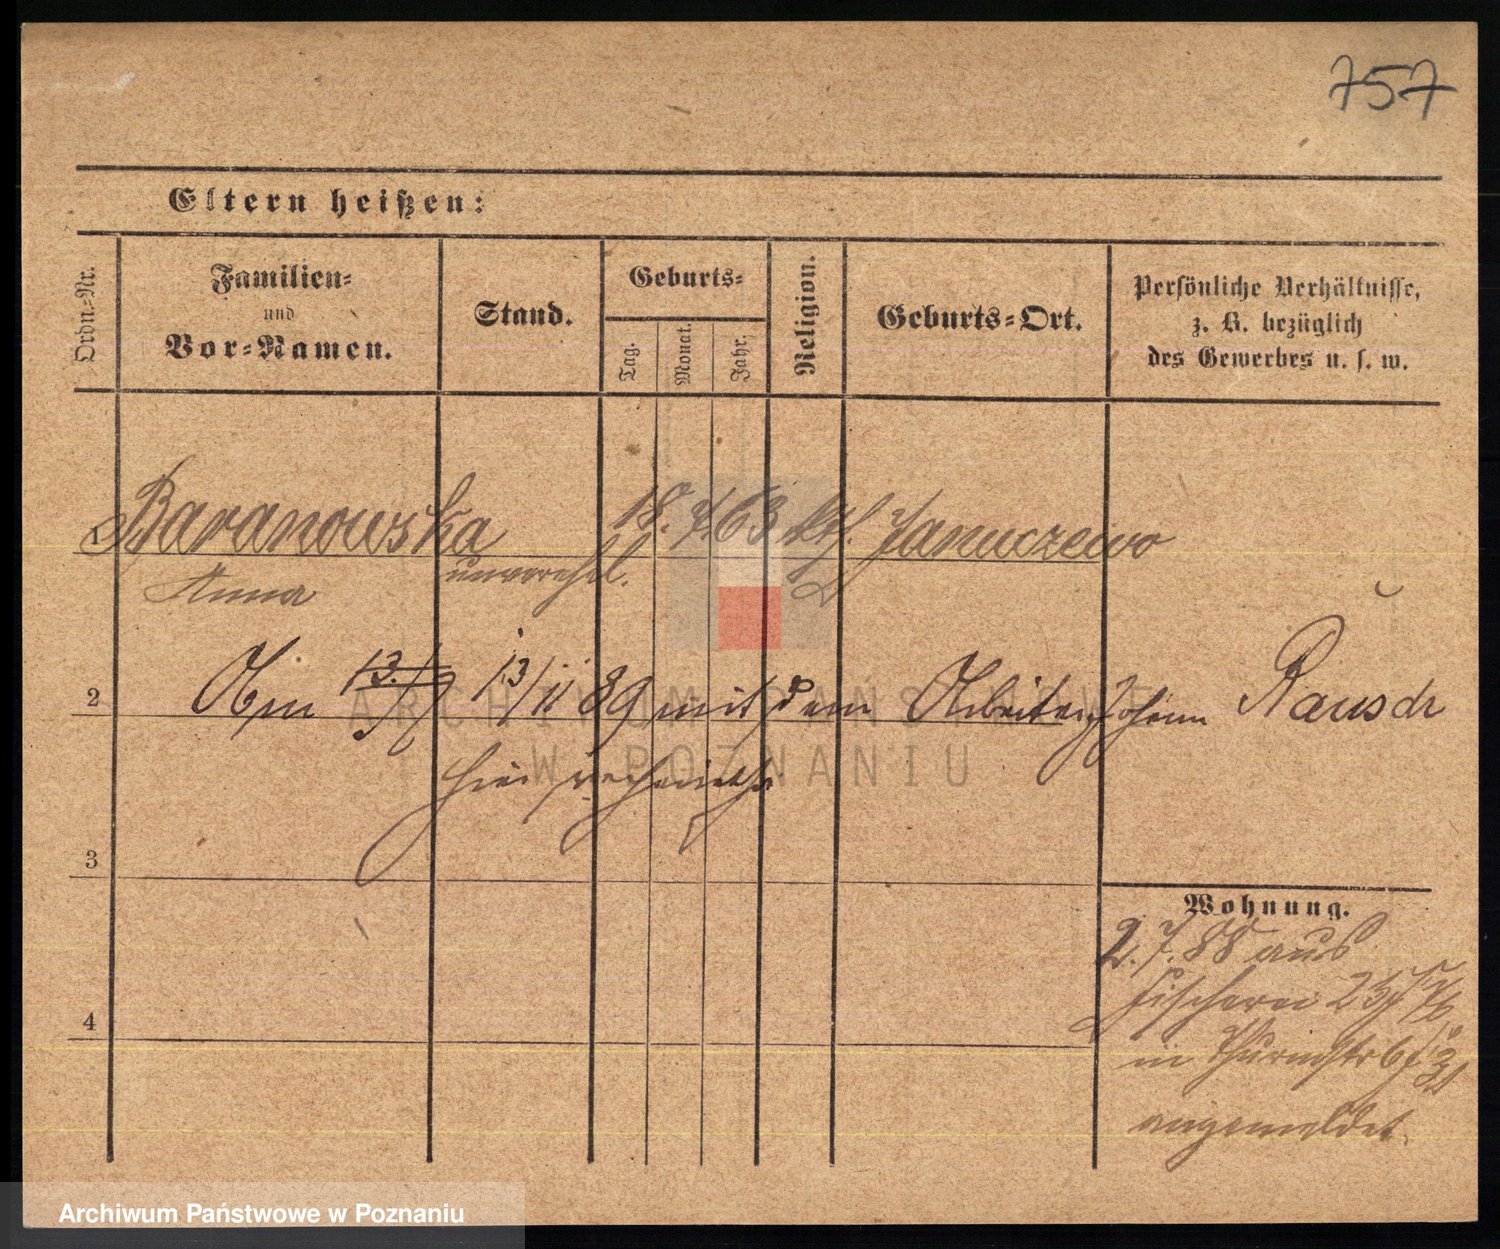 757
Eltern heißen:
Ordn.-Nr.
Familien-
und
Vor-Namen.
Stand.
Geburts-
Tag.
Monat.
Jahr.
Religion.
Geburts-Ort.
Persönliche Verhältnisse,
z. B. bezüglich
des Gewerbes u. s. w.
1 Baranowska 18. 7. 63 kth. Januczewo
Anna unverehel.
2 13/11 89 mit dem Arbeiter Johann Rausch
hier verheirathet
ARCHIWUM PAŃSTWOWE
W POZNANIU
3
Wohnung.
2. 7. 88 aus
Fischerei 23
in Thurmstr 6
angemeldet.
4
Archiwum Państwowe w Poznaniu